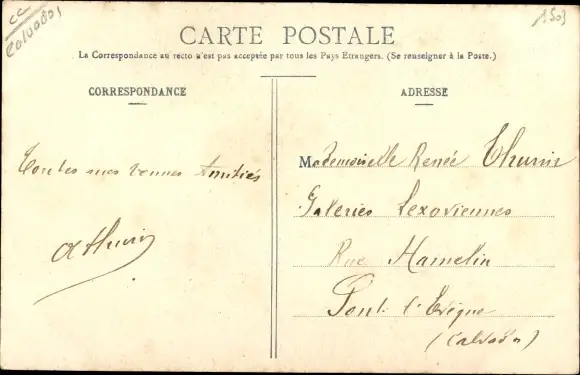 CC
CALVADOS
1503
CARTE POSTALE
La Correspondance au recto n'est pas acceptée par tous les Pays Etrangers. (Se renseigner à la Poste.)
CORRESPONDANCE
ADRESSE
Toutes mes bonnes Amitiés
AThurin
Mademoiselle Renée Thurin
Galeries Lexoviennes
Rue Hamelin
Pont l'Evêque
(Calvados)